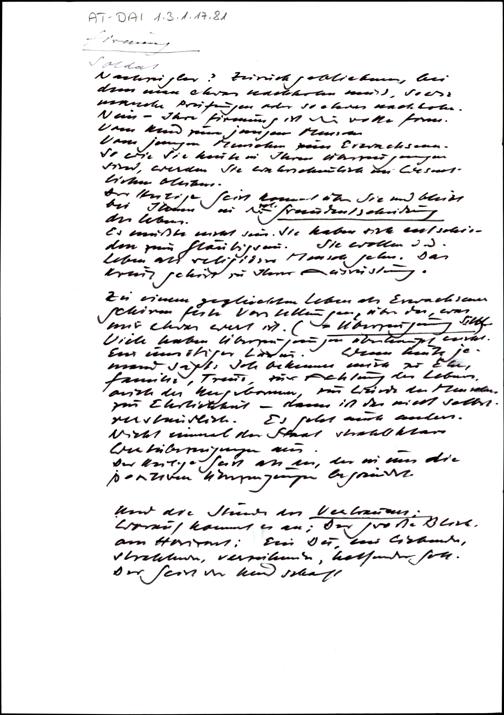 AT-DAI 1.3.1.17.81
Firmung
Soldat
Nachzügler? Zurückgebliebener, bei
dem man etwas nachholen muß, so wie
manche Prüfungen oder so etwas nachholen.
Nein – Ihre Firmung ist die volle Form.
Vom Kind zum jungen Menschen
Vom jungen Menschen zum Erwachsenen.
So wie Sie heute in Ihren Überzeugungen
sind, werden Sie wahrscheinlich im Wesent-
lichen bleiben.
Der Heilige Geist kommt über Sie und bleibt
bei Ihnen in der Grundentscheidung
des Lebens.
Es müßte nicht sein. Sie haben sich entschie-
den zum Gläubigsein. Sie wollen
Leben als religiöser Mensch gehen. Das
Kreuz gehört zu Ihrer Ausrüstung.
Zu einem geglückten Leben als Erwachsener
gehören feste Vorstellungen, über das, was
mir etwas wert ist. (Überzeugung
Viele haben Überzeugungen überhaupt nicht.
Wenn heute je-
mand sagt: Ich bekenne mich zu Ehe,
Familie, Treue, zur Achtung des Lebens,
auch des Ungeborenen, zur Würde des Menschen
zur Ehrlichkeit – dann ist das nicht selbst-
verständlich. Es geht auch anders.
Nicht einmal der Staat strahlt klare
Wertüberzeugungen aus.
Der Heilige Geist ist der, der in uns die
positiven Überzeugungen begründet
Und die Stunde des Vertrauens:
Worauf kommt es an: Der große Blick
am Horizont: Ein Du, ein liebender,
strahlender, verzeihender, helfender Gott.
Der Geist der Kindschaft